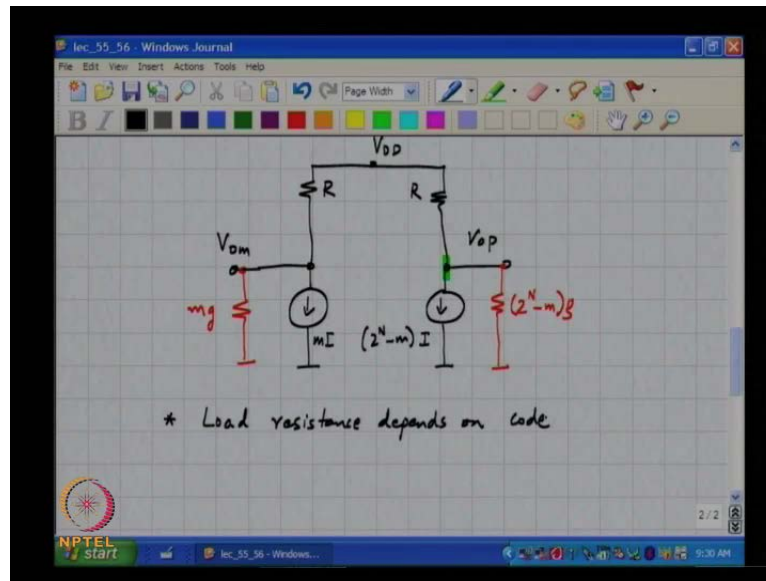 lec_55_56 - Windows Journal
File Edit View Insert Actions Tools Help
Page Width
B I
VDD
R R
Vom Vop
mg mI (2^N-m) I (2^N-m)g
* Load resistance depends on code
2/2
NPTEL
start lec_55_56 - Windows... 9:30 AM